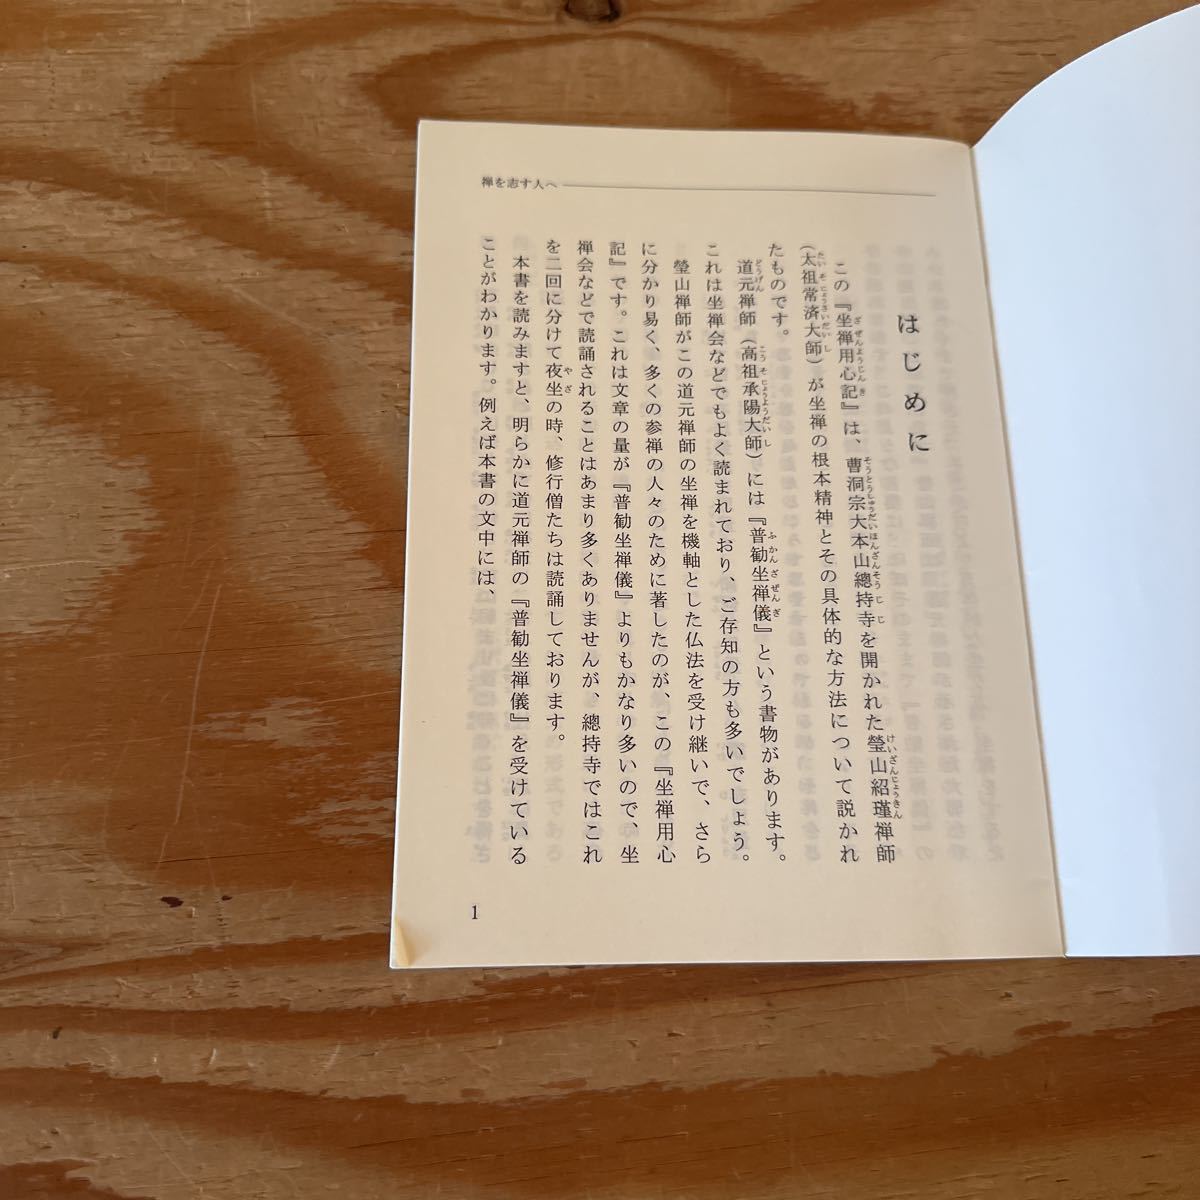 禅を志す人へ
はじめに
この『坐禅用心記』は、曹洞宗大本山總持寺を開かれた瑩山紹瑾禅師
（太祖常済大師）が坐禅の根本精神とその具体的な方法について説かれ
たものです。
道元禅師（高祖承陽大師）には『普勧坐禅儀』という書物があります。
これは坐禅会などでもよく読まれており、ご存知の方も多いでしょう。
瑩山禅師がこの道元禅師の坐禅を機軸とした仏法を受け継いで、さら
に分かり易く、多くの参禅の人々のために著したのが、この『坐禅用心
記』です。これは文章の量が『普勧坐禅儀』よりもかなり多いので、坐
禅会などで読誦されることはあまり多くありませんが、總持寺ではこれ
を二回に分けて夜坐の時、修行僧たちは読誦しております。
本書を読みますと、明らかに道元禅師の『普勧坐禅儀』を受けている
ことがわかります。例えば本書の文中には、
1